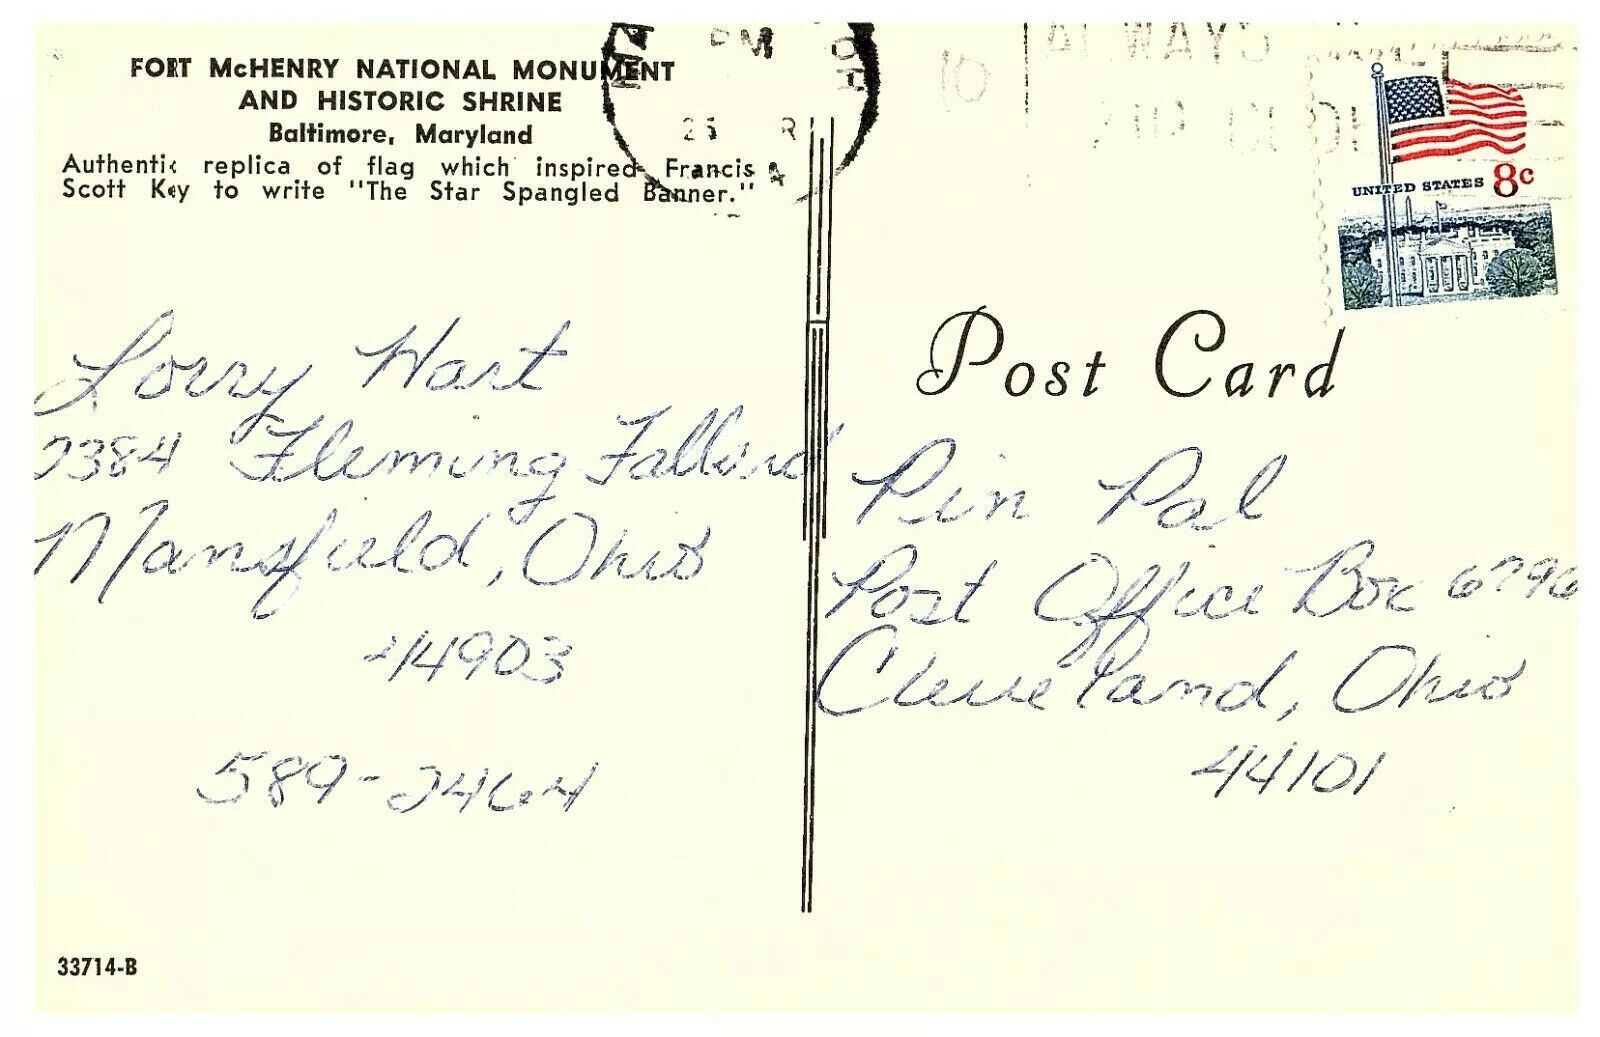 FORT McHENRY NATIONAL MONUMENT
AND HISTORIC SHRINE
Baltimore, Maryland
Authentic replica of flag which inspired Francis
Scott Key to write "The Star Spangled Banner."
PM
UNITED STATES 8c
Post Card
Lorry Hart
2384 Fleming Falls rd
Mansfield, Ohio
44903
589-2464
Pin Pal
Post Office Box 6796
Cleveland, Ohio
44101
33714-B